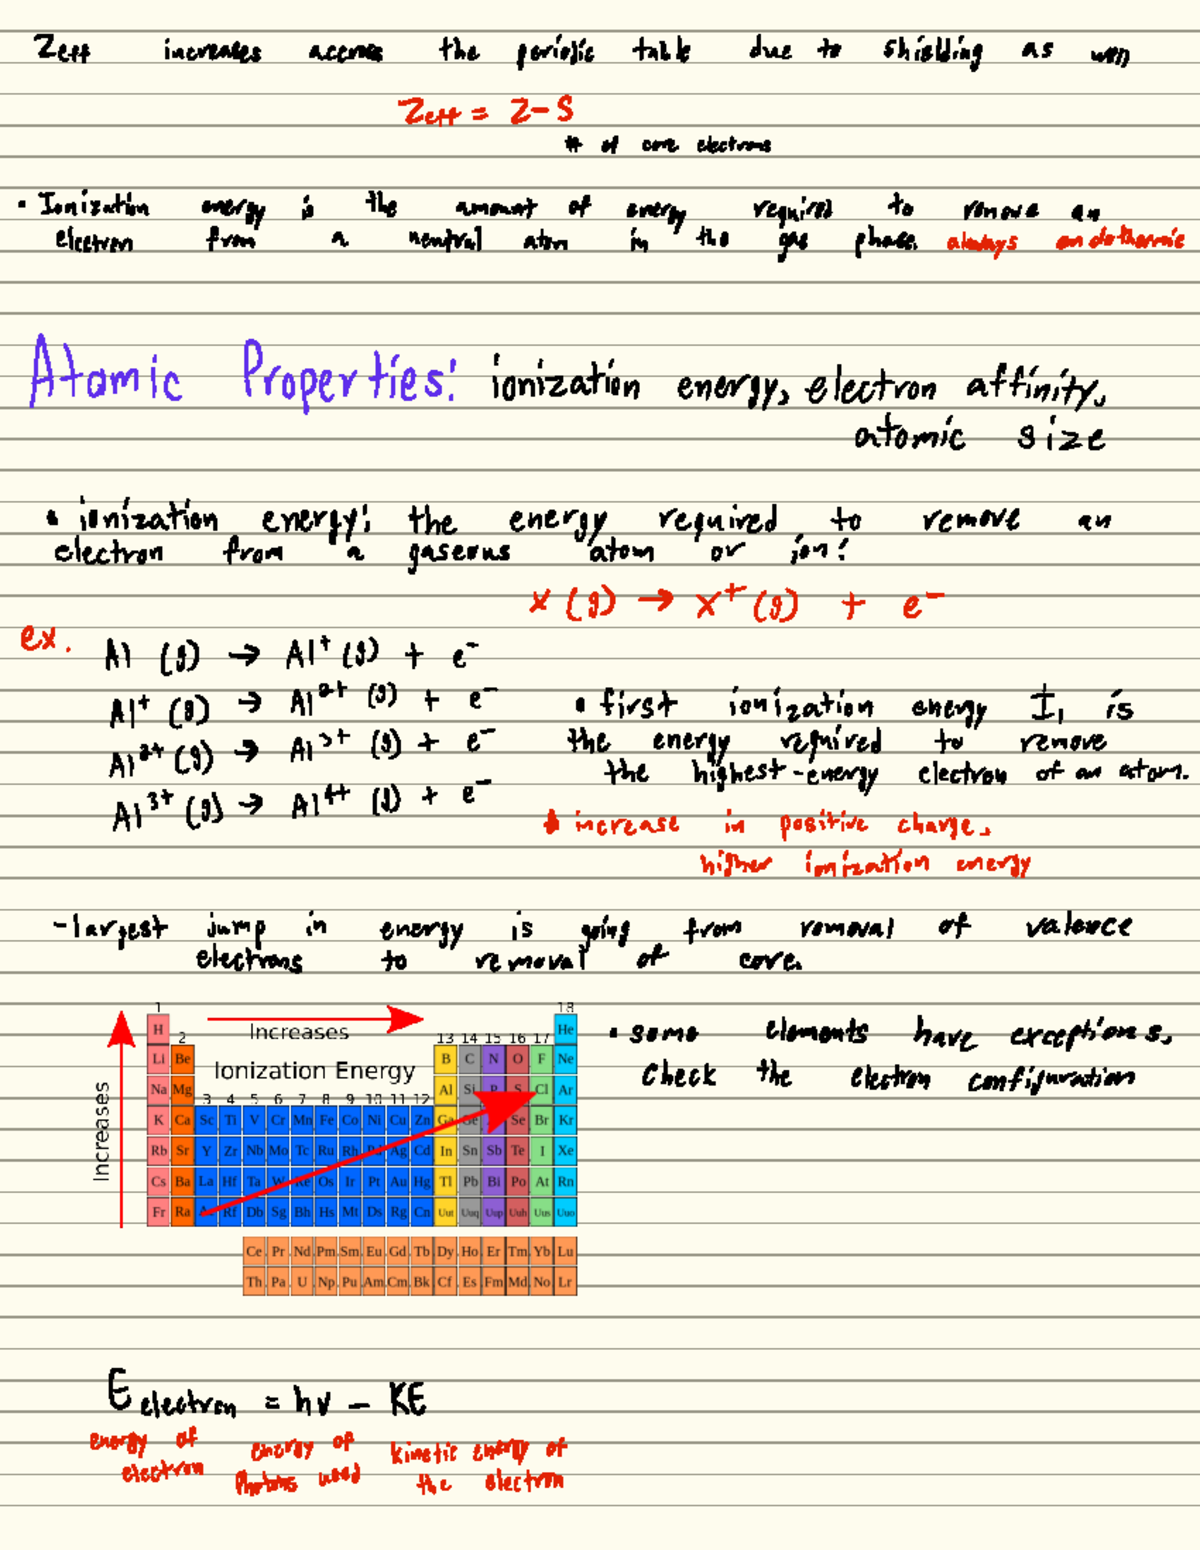 Zeff increases accross the periodic table due to shielding as well
Zeff = Z - S
# of core electrons
• Ionization energy is the amount of energy required to remove an
electron from a neutral atom in the gas phase. always endothermic
Atomic Properties: ionization energy, electron affinity,
atomic size
• ionization energy: the energy required to remove an
electron from a gaseous atom or ion:
X (g) → X⁺ (g) + e⁻
ex.
Al (g) → Al⁺ (g) + e⁻
Al⁺ (g) → Al²⁺ (g) + e⁻
Al²⁺ (g) → Al³⁺ (g) + e⁻
Al³⁺ (g) → Al⁴⁺ (g) + e⁻
• first ionization energy I₁ is
the energy required to remove
the highest-energy electron of an atom.
increase in positive charge,
higher ionization energy
- largest jump in energy is going from removal of valence
electrons to removal of core.
1 18
Increases
H He
2 13 14 15 16 17
Li Be B C N O F Ne
Ionization Energy
Na Mg Al Si P S Cl Ar
3 4 5 6 7 8 9 10 11 12
K Ca Sc Ti V Cr Mn Fe Co Ni Cu Zn Ga Ge Se Br Kr
Rb Sr Y Zr Nb Mo Tc Ru Rh Pd Ag Cd In Sn Sb Te I Xe
Cs Ba La Hf Ta W Re Os Ir Pt Au Hg Tl Pb Bi Po At Rn
Fr Ra Ac Rf Db Sg Bh Hs Mt Ds Rg Cn Uut Uuq Uup Uuh Uus Uuo
Ce Pr Nd Pm Sm Eu Gd Tb Dy Ho Er Tm Yb Lu
Th Pa U Np Pu Am Cm Bk Cf Es Fm Md No Lr
Increases
• some elements have exceptions,
check the electron configuration
E electron = hν - KE
energy of electron
energy of photons used
kinetic energy of the electron